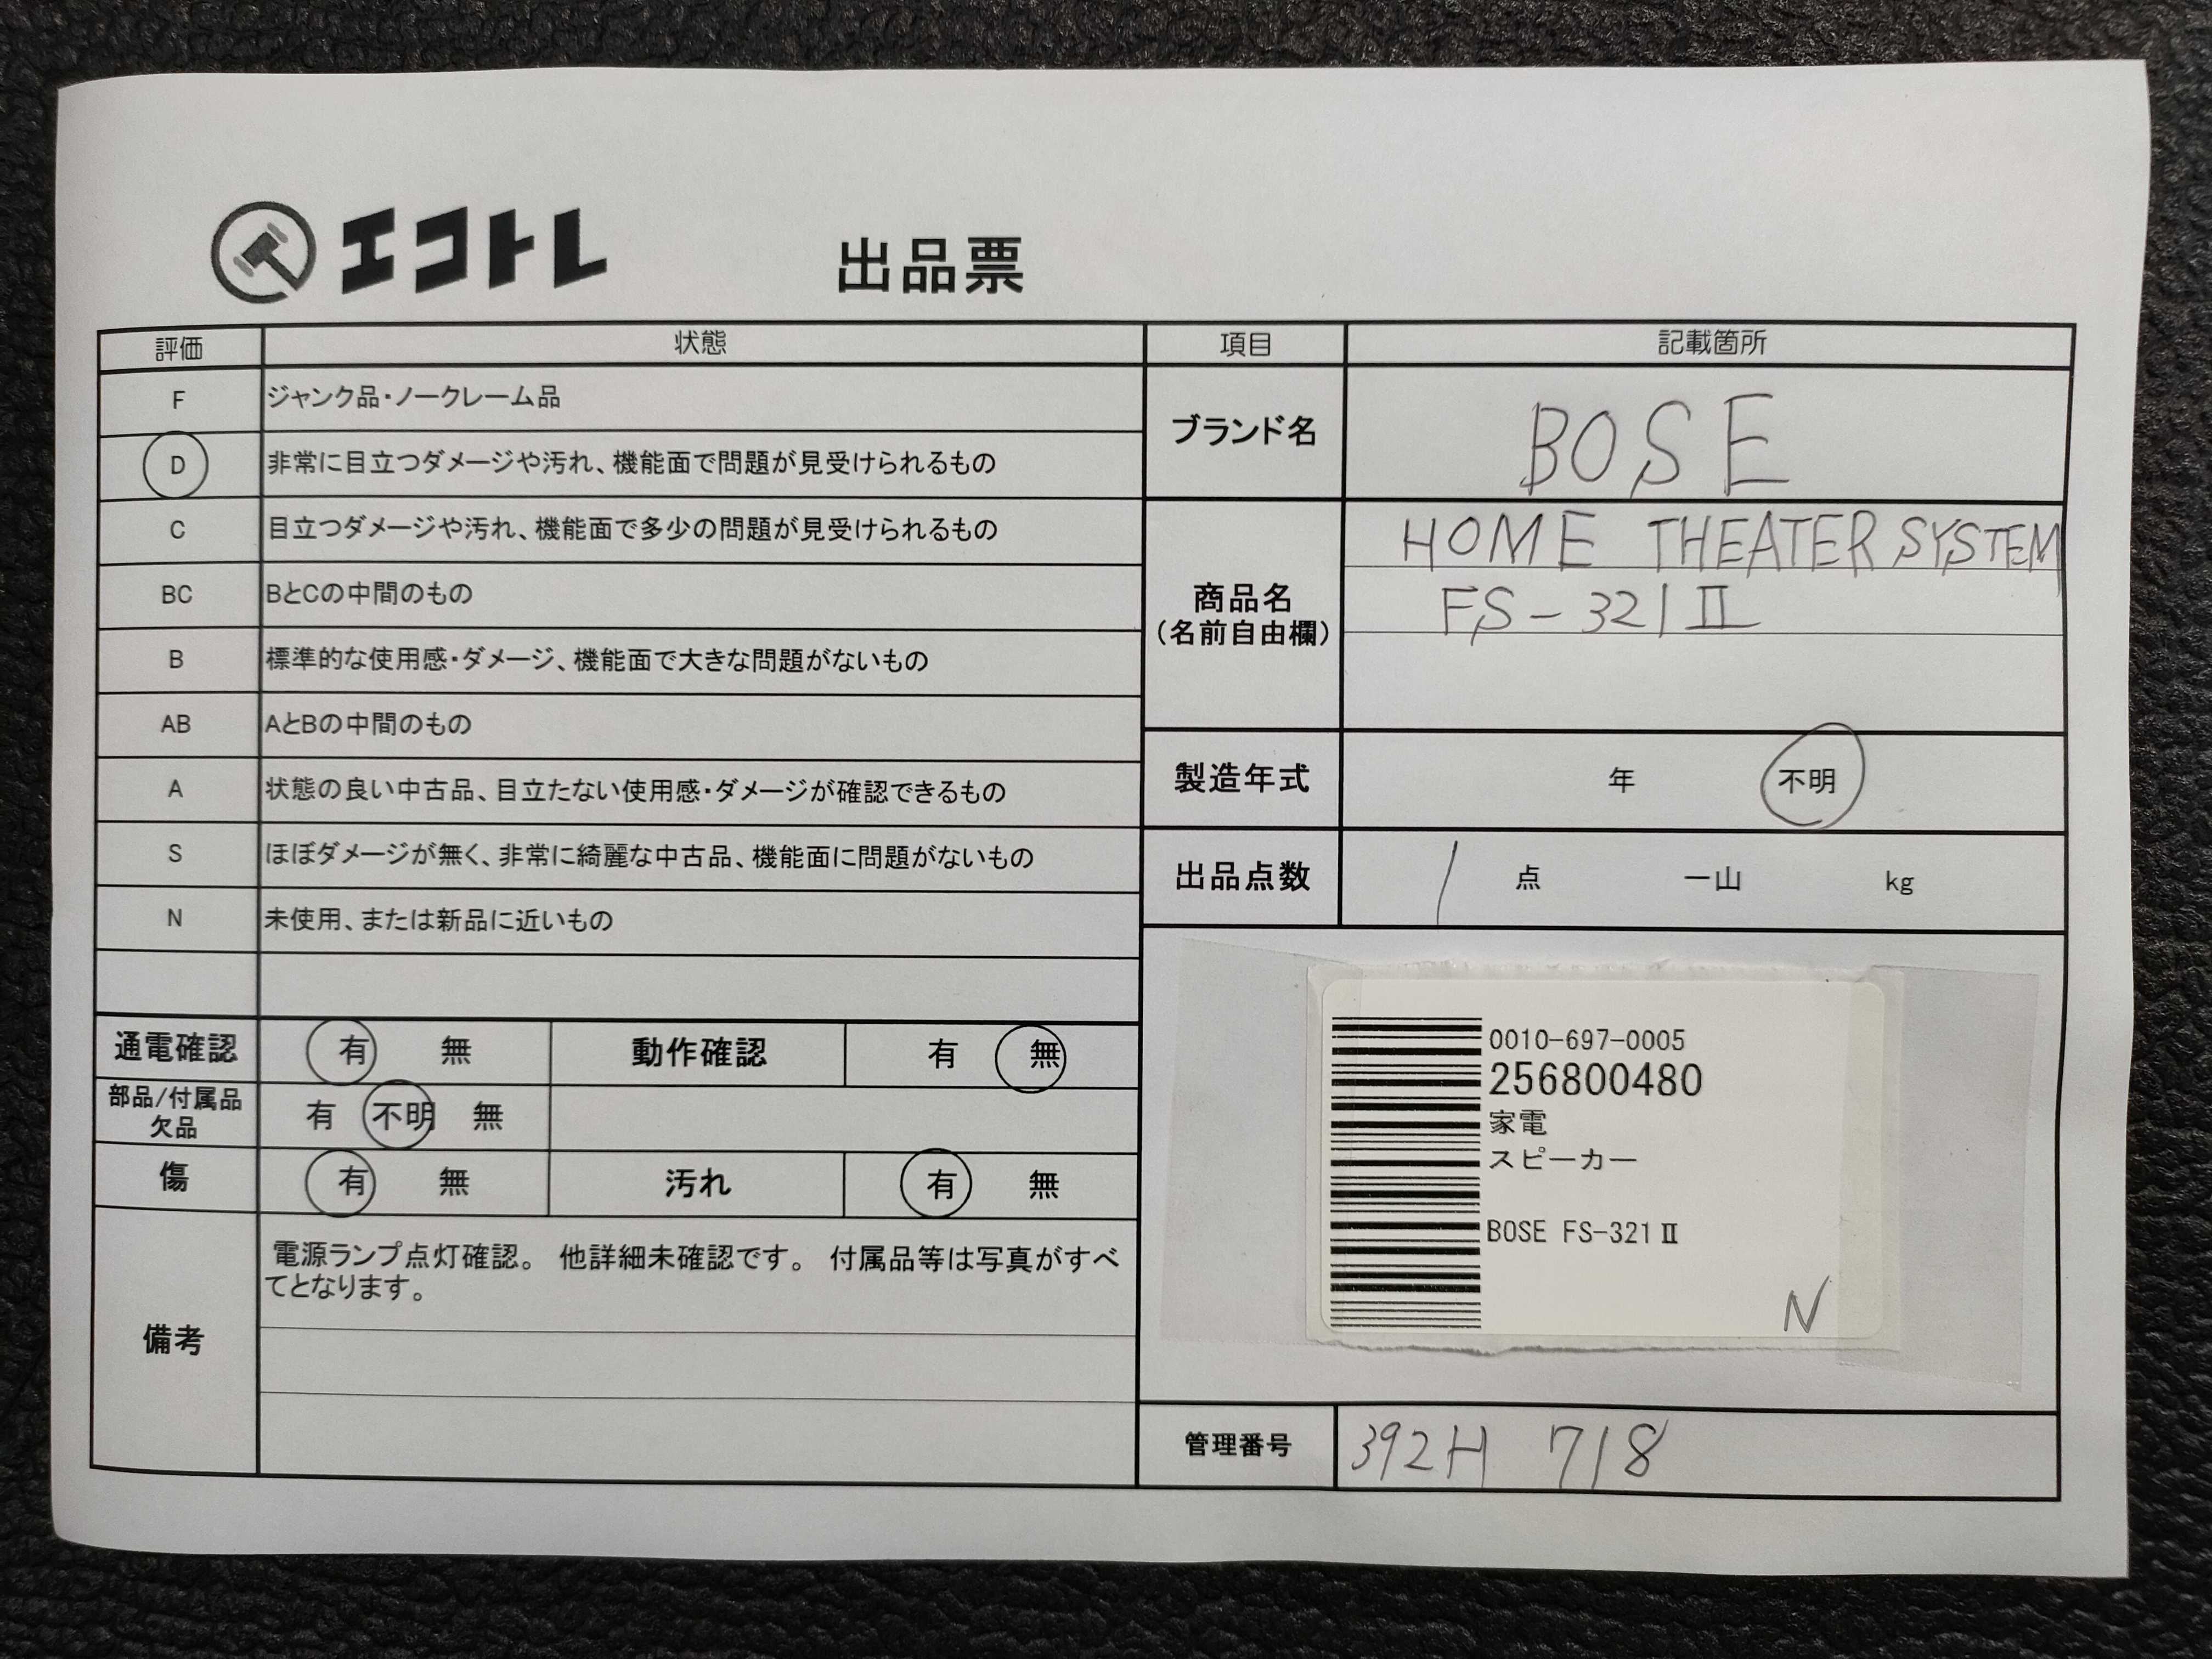 エコトレ
出品票
評価 状態
F ジャンク品・ノークレーム品
D 非常に目立つダメージや汚れ、機能面で問題が見受けられるもの
C 目立つダメージや汚れ、機能面で多少の問題が見受けられるもの
BC BとCの中間のもの
B 標準的な使用感・ダメージ、機能面で大きな問題がないもの
AB AとBの中間のもの
A 状態の良い中古品、目立たない使用感・ダメージが確認できるもの
S ほぼダメージが無く、非常に綺麗な中古品、機能面に問題がないもの
N 未使用、または新品に近いもの
通電確認 有 無 動作確認 有 無
部品/付属品
欠品
有 不明 無
傷 有 無 汚れ 有 無
備考
電源ランプ点灯確認。 他詳細未確認です。 付属品等は写真がすべ
てとなります。
項目 記載箇所
ブランド名 BOSE
商品名
(名前自由欄)
HOME THEATER SYSTEM
FS-321Ⅱ
製造年式 年 不明
出品点数 1 点 一山 kg
0010-697-0005
256800480
家電
スピーカー
BOSE FS-321Ⅱ
N
管理番号 392H 718